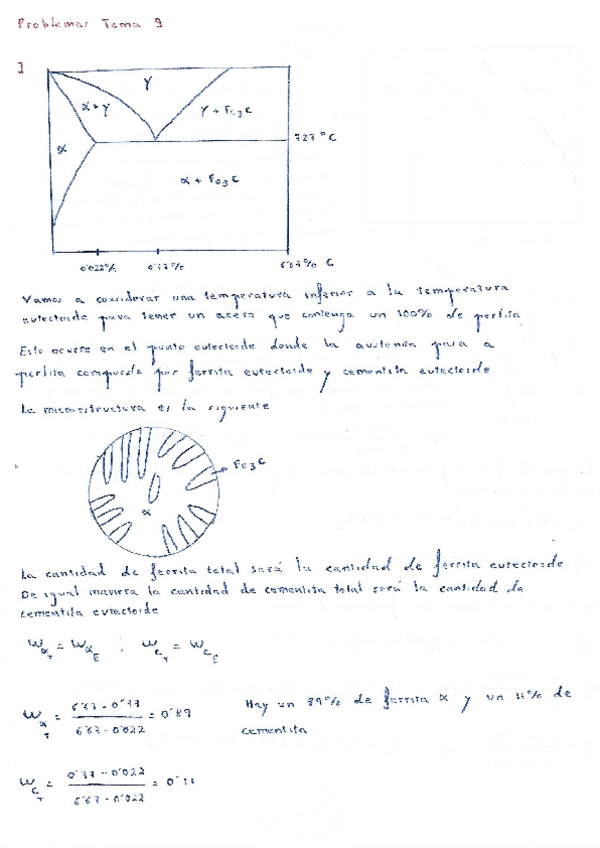 Problemas Tema 9
1
γ
α+γ
γ + Fe3C
727 °C
α
α + Fe3C
0'022%
0'77%
6'67% C
Vamos a considerar una temperatura inferior a la temperatura
eutectoide para tener un acero que contenga un 100% de perlita
Esto ocurre en el punto eutectoide donde la austenita pasa a
perlita compuesta por ferrita eutectoide y cementita eutectoide
La microestructura es la siguiente
Fe3C
α
La cantidad de ferrita total será la cantidad de ferrita eutectoide
De igual manera la cantidad de cementita total será la cantidad de
cementita eutectoide
WαT = WαE ; WCT = WCE
WαT = (6'67 - 0'77) / (6'67 - 0'022) = 0'89
Hay un 89% de ferrita α y un 11% de
cementita
WCT = (0'77 - 0'022) / (6'67 - 0'022) = 0'11